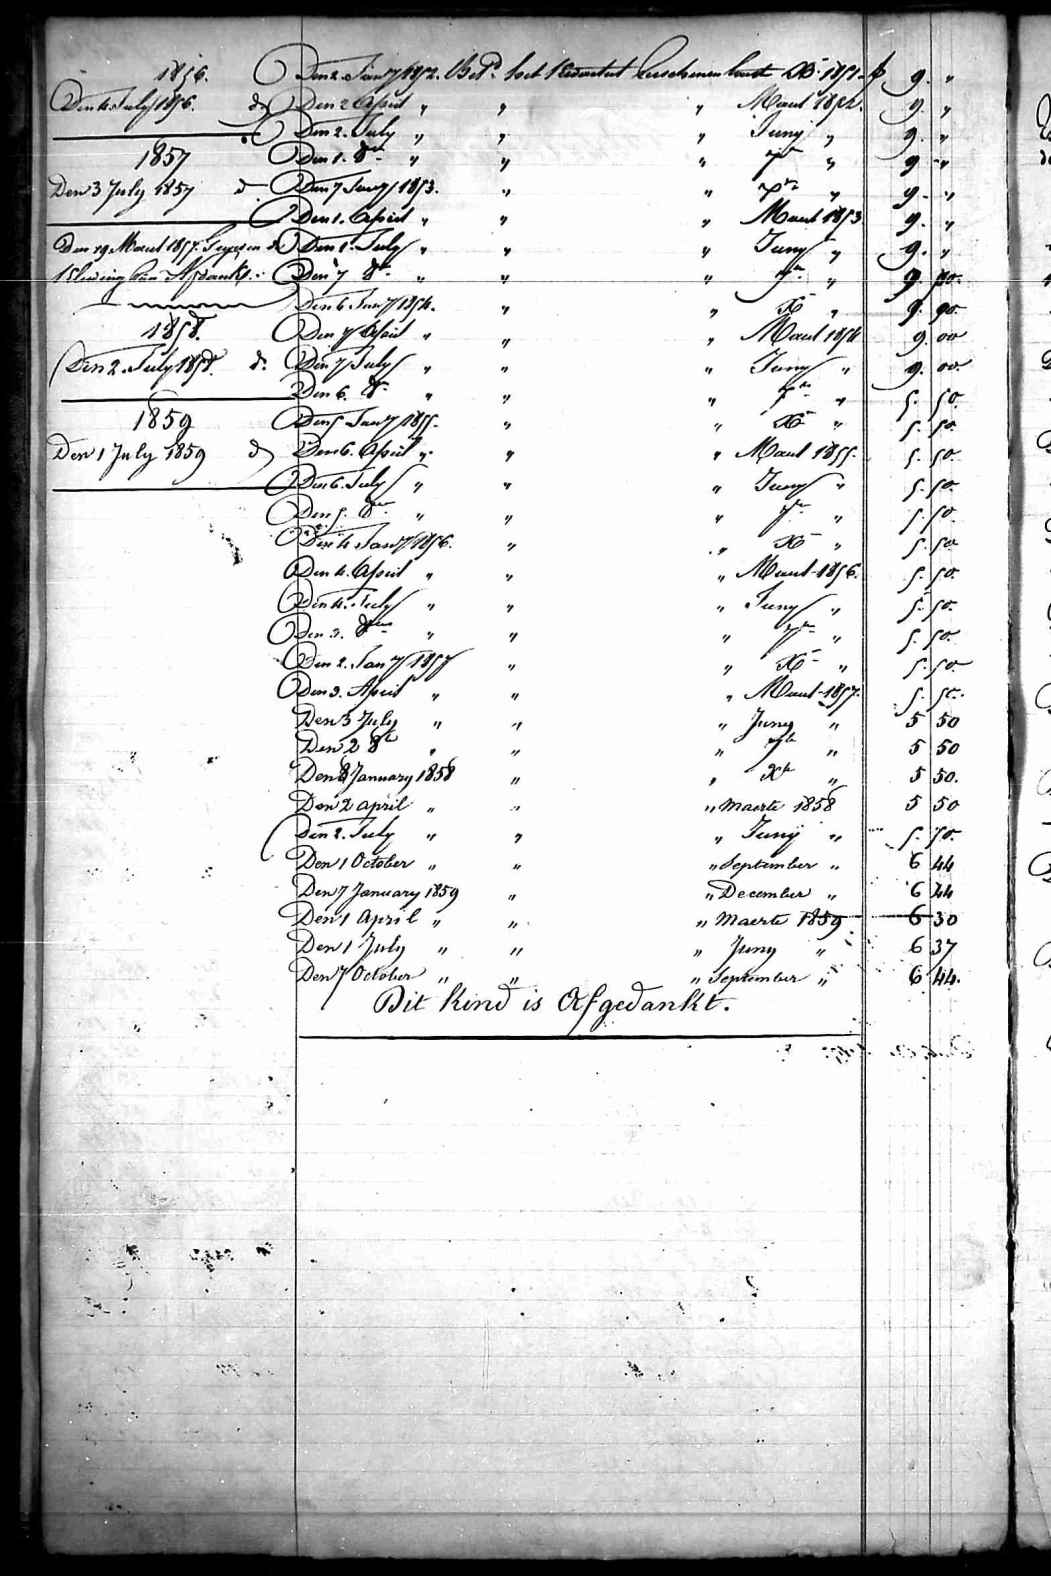 1856.
Den 4 July 1856. do
1857
Den 3 July 1857 do
Den 29 Maart 1857. do
Kleeding van Afdank.
1858.
Den 2. July 1858. do
1859
Den 1 July 1859 do
Den 2. Jany 1852. Bet. het Kwartaal verschenen laatst Xb 1851. f 9. "
Den 2 April " " " Maart 1852. 9. "
Den 2. July " " " Juny " 9. "
Den 1. 8br " " " 7br " 9. "
Den 7 Jany 1853. " " " 9. "
Den 1. April " " " Maart 1853 9. "
Den 1. July " " " Juny " 9. "
Den 7 8br " " " 7br " 9.
Den 6 Jany 1854. " " Xb " 9. 90.
Den 7 April " " " Maart 1854 9. 00
Den 7 July " " " Juny " 9. 00.
Den 6. 8br " " " 7br " 5. 50.
Den 5 Jany 1855. " " Xb " 5. 50.
Den 6. April " " " Maart 1855. 5. 50.
Den 6. July " " " Juny " 5. 50.
Den 5. 8br " " " 7br " 5. 50.
Den 4 Jany 1856. " " Xb " 5. 50
Den 4. April " " " Maart 1856. 5. 50.
Den 4. July " " " Juny " 5. 50.
Den 3. 8br " " " 7br " 5. 50.
Den 2. Jany 1857 " " Xb " 5. 50
Den 3. April " " " Maart 1857. 5. 50.
Den 3 July " " " Juny " 5 50
Den 2 8br " " " 7br " 5 50
Den 8 January 1858 " " Xbr " 5 50.
Den 2 april " " " Maerte 1858 5 50
Den 2. July " " " Juny " 5. 50.
Den 1 October " " " September " 6 44
Den 7 January 1859 " " December " 6 44
Den 1 April " " " Maerte 1859 6 30
Den 1 July " " " Juny " 6 37
Den 7 October " " " September " 6 44.
Dit Kind is Afgedankt.